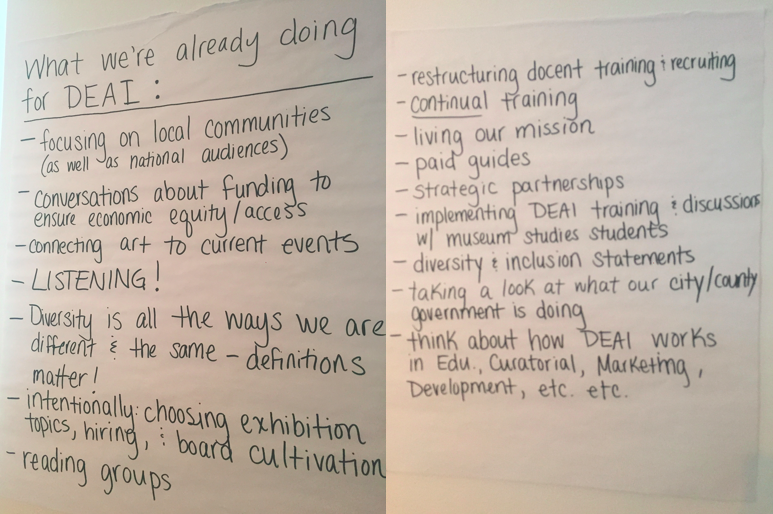 What we're already doing
for DEAI :
- focusing on local communities
(as well as national audiences)
- conversations about funding to
ensure economic equity/access
- connecting art to current events
- LISTENING!
- Diversity is all the ways we are
different & the same - definitions
matter!
- intentionally: choosing exhibition
topics, hiring, & board cultivation
- reading groups
- restructuring docent training & recruiting
- continual training
- living our mission
- paid guides
- strategic partnerships
- implementing DEAI training & discussions
w/ museum studies students
- diversity & inclusion statements
- taking a look at what our city/county
government is doing
- think about how DEAI works
in Edu., Curatorial, Marketing,
Development, etc. etc.